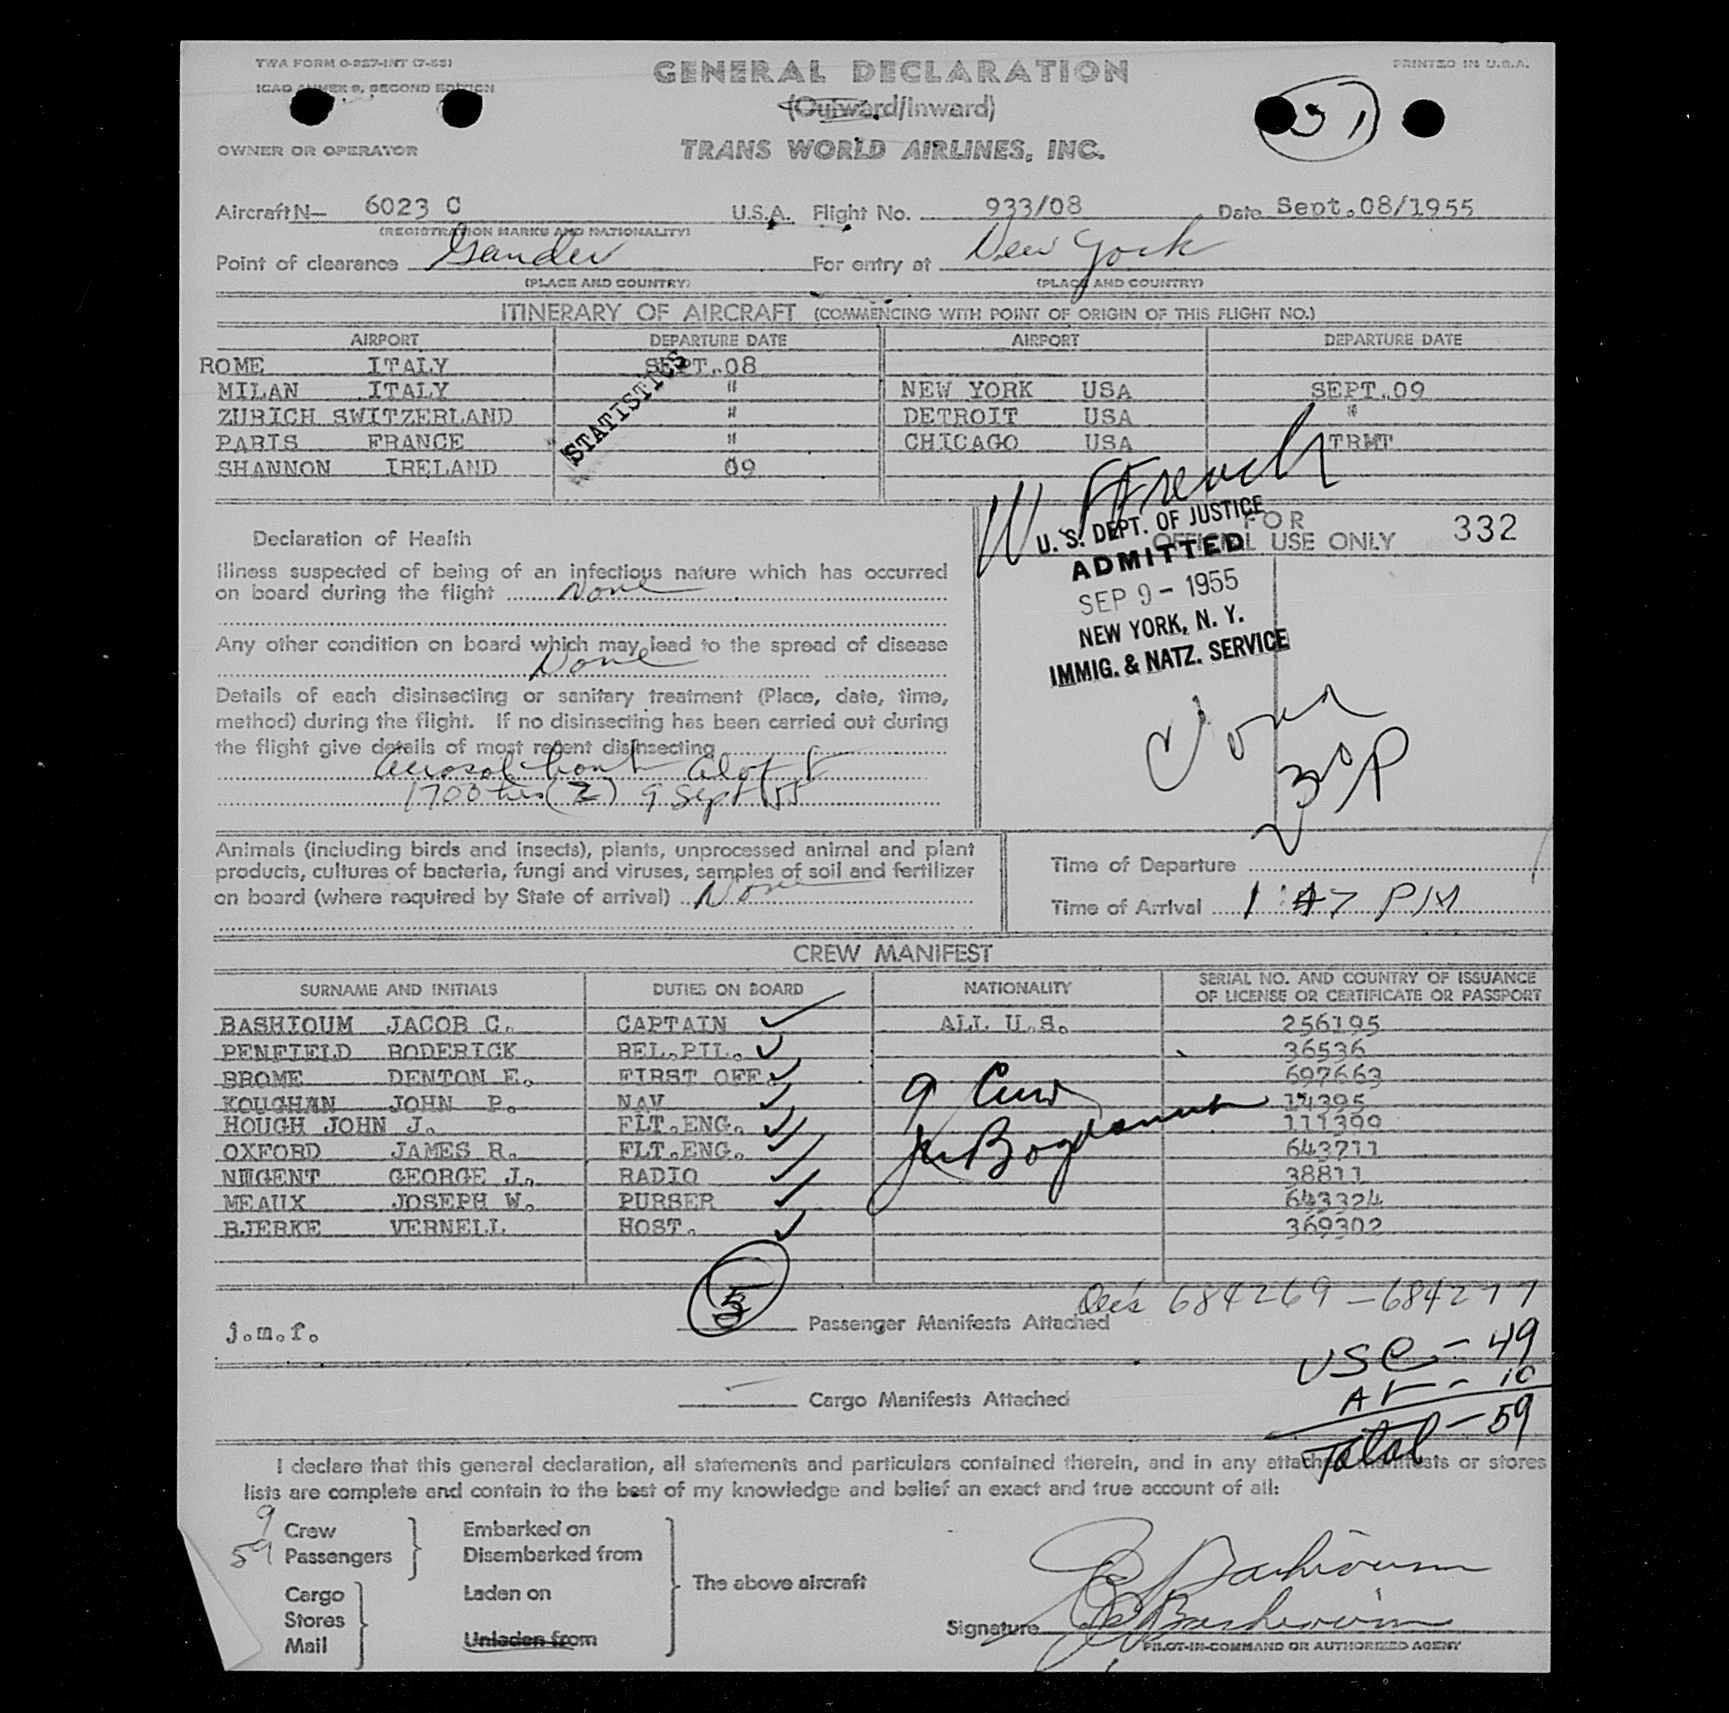 TWA FORM O-957-INT (7-55)
ICAO ANNEX 9, SECOND EDITION
PRINTED IN U.S.A.
GENERAL DECLARATION
(Outward/Inward)
OWNER OR OPERATOR
TRANS WORLD AIRLINES, INC.
Aircraft N— 6023 C U.S.A. Flight No. 933/08 Date Sept.08/1955
(REGISTRATION MARKS AND NATIONALITY)
Point of clearance Gander For entry at New York
(PLACE AND COUNTRY) (PLACE AND COUNTRY)
ITINERARY OF AIRCRAFT (COMMENCING WITH POINT OF ORIGIN OF THIS FLIGHT NO.)
AIRPORT DEPARTURE DATE AIRPORT DEPARTURE DATE
ROME ITALY SEPT.08
MILAN ITALY " NEW YORK USA SEPT.09
ZURICH SWITZERLAND " DETROIT USA "
PARIS FRANCE " CHICAGO USA TRMT
SHANNON IRELAND 09
STATISTICS
W French
Declaration of Health
FOR
OFFICIAL USE ONLY 332
U. S. DEPT. OF JUSTICE
ADMITTED
SEP 9 - 1955
NEW YORK, N. Y.
IMMIG. & NATZ. SERVICE
Illness suspected of being of an infectious nature which has occurred
on board during the flight None
Any other condition on board which may lead to the spread of disease
None
Details of each disinsecting or sanitary treatment (Place, date, time,
method) during the flight. If no disinsecting has been carried out during
the flight give details of most recent disinsecting
Aerosol bomb aloft
1700 hrs (Z) 9 Sept 55
Animals (including birds and insects), plants, unprocessed animal and plant
products, cultures of bacteria, fungi and viruses, samples of soil and fertilizer
on board (where required by State of arrival) None
Time of Departure
Time of Arrival 1:47 PM
CREW MANIFEST
SURNAME AND INITIALS DUTIES ON BOARD NATIONALITY SERIAL NO. AND COUNTRY OF ISSUANCE
OF LICENSE OR CERTIFICATE OR PASSPORT
BASHIOUM JACOB C. CAPTAIN ALL U.S. 256195
PENFIELD RODERICK REL.PIL. 36536
BROME DENTON E. FIRST OFF. 697663
KOUGHAN JOHN P. NAV 14395
HOUGH JOHN J. FLT.ENG. 111399
OXFORD JAMES R. FLT.ENG. 643711
NUGENT GEORGE J. RADIO 38811
MEAUX JOSEPH W. PURSER 643324
BJERKE VERNELL HOST. 369302
9 Crew
5 Passenger Manifests Attached
684269 - 684277
j.m.f.
USC - 49
Ar - 10
Total - 59
Cargo Manifests Attached
I declare that this general declaration, all statements and particulars contained therein, and in any attached manifests or stores
lists are complete and contain to the best of my knowledge and belief an exact and true account of all:
9 Crew Embarked on
59 Passengers Disembarked from
The above aircraft
Cargo Laden on
Stores
Mail Unladen from
J C Bashioum
Signature J C Bashioum
PILOT-IN-COMMAND OR AUTHORIZED AGENT